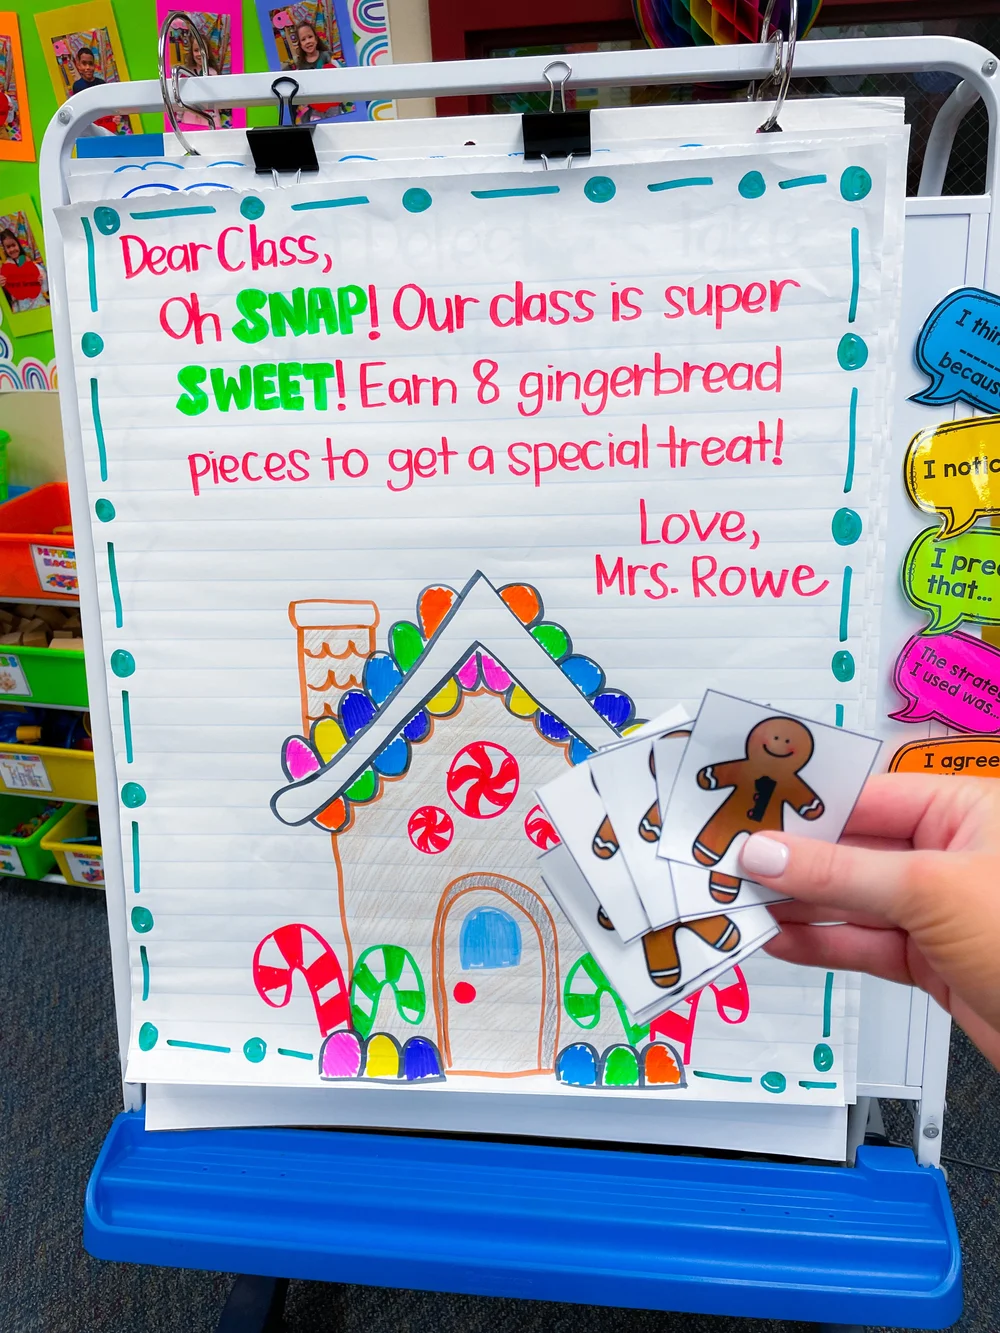 Dear Class,
Oh SNAP! Our class is super
SWEET! Earn 8 gingerbread
pieces to get a special treat!
Love,
Mrs. Rowe
I
I
that...
The
I used was...
I agree